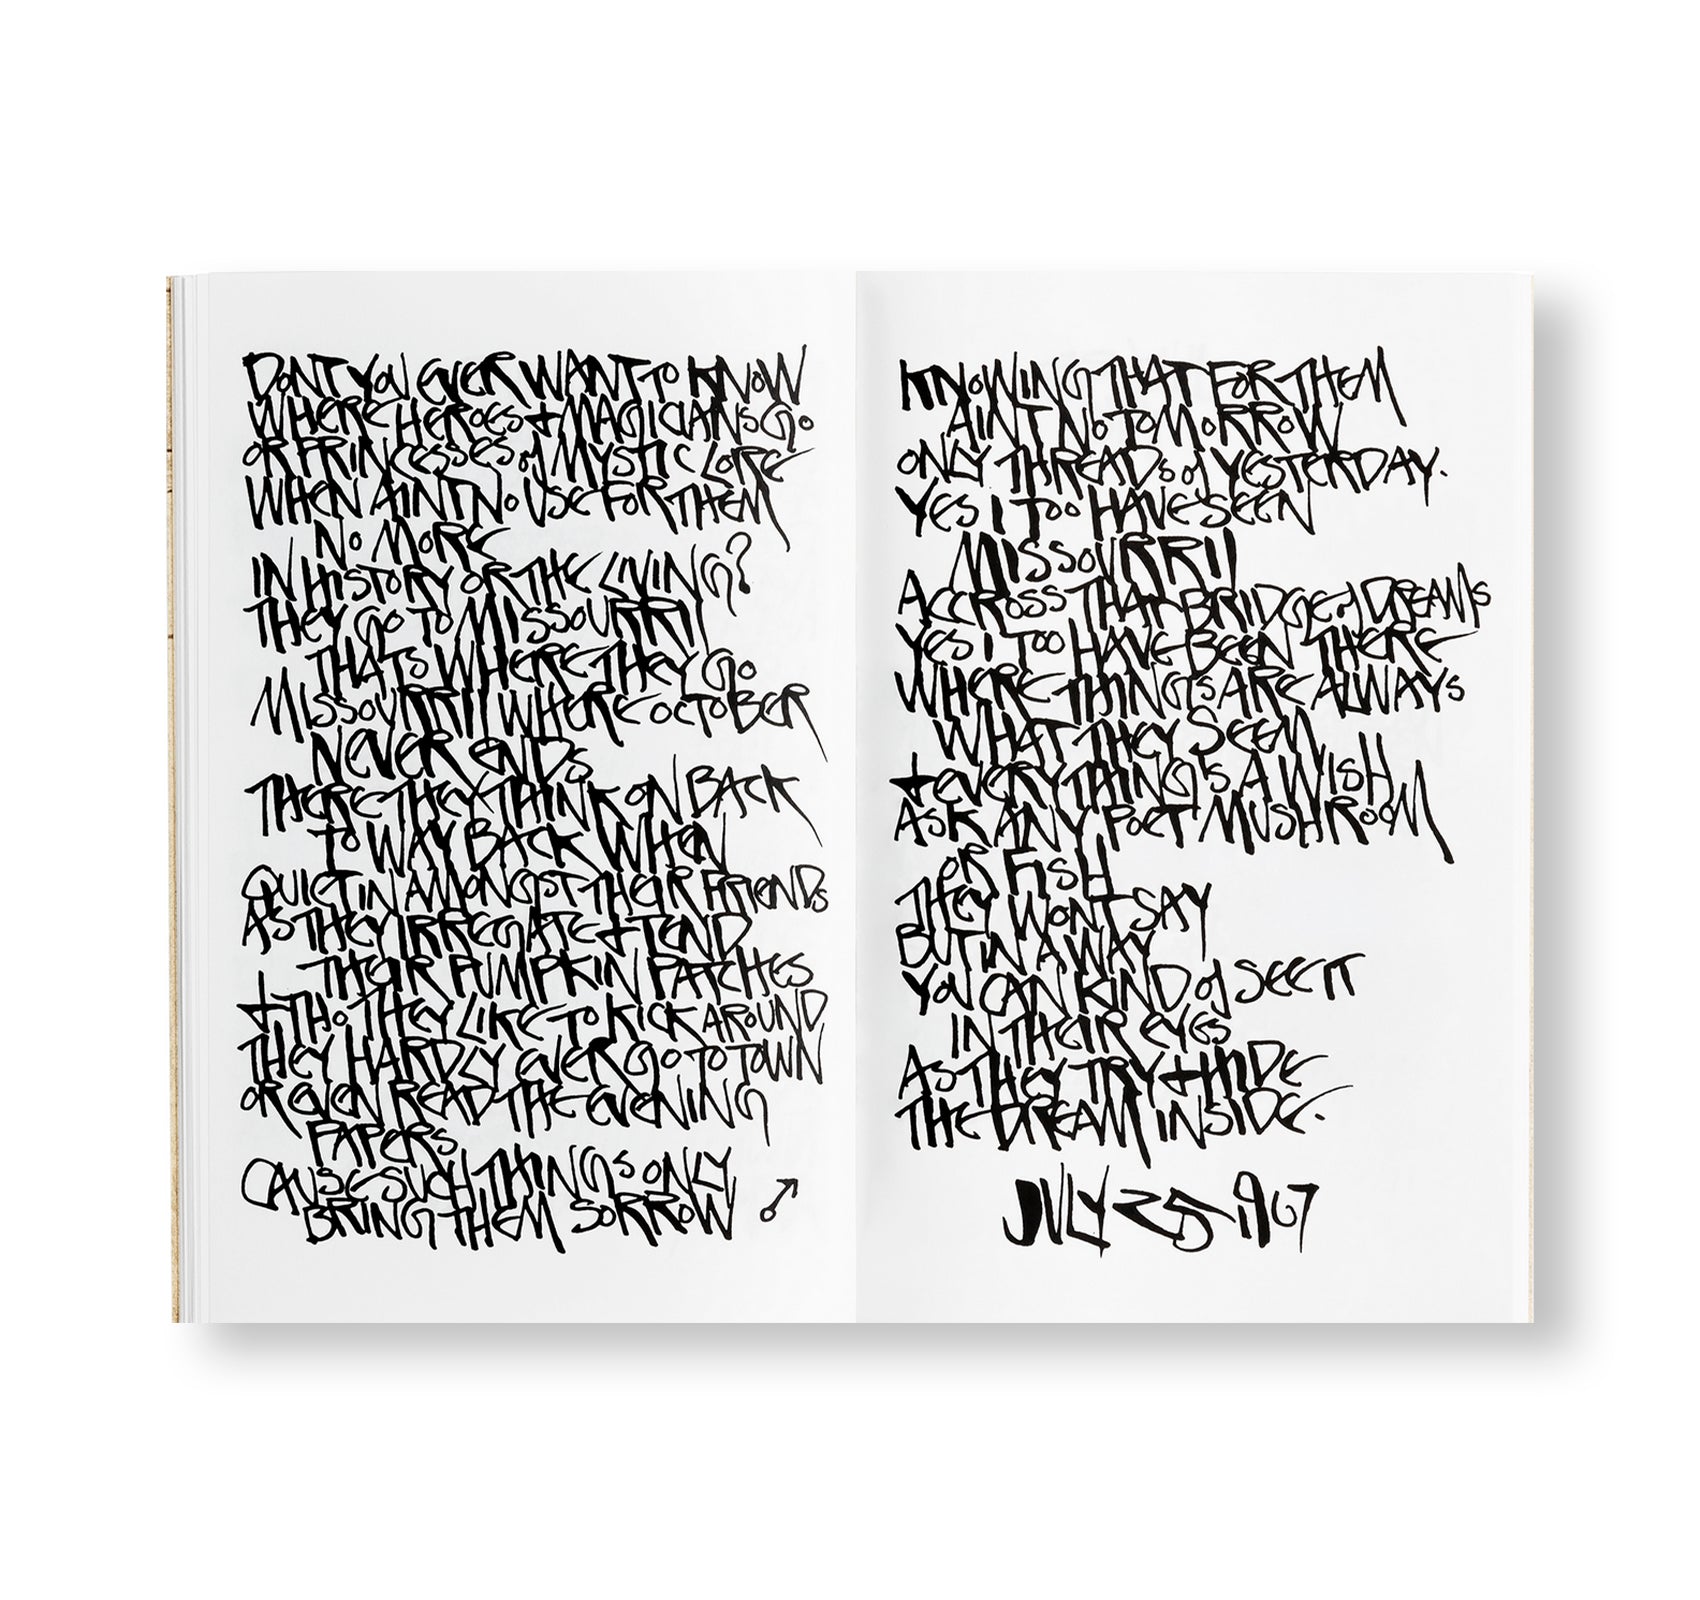 DONT YOU EVER WANT TO KNOW
WHERE HEROES + MAGICIANS GO
OR PRINCESSES of MYSTIC LORE
WHEN AINT NO USE FOR THEM
NO MORE
IN HISTORY OR THE LIVING?
THEY GO TO MISSOURRII
THATS WHERE THEY GO
MISSOURRII WHERE OCTOBER
NEVER ENDS
THERE THEY THINK ON BACK
TO WAY BACK WHEN
QUIET IN AMONGST THEIR FRIENDS
AS THEY IRREGATE + TEND
THEIR PUMPKIN PATCHES
+ THO THEY LIKE TO KICK AROUND
THEY HARDLY EVER GO TO TOWN
OR EVEN READ THE EVENING
PAPERS
CAUSE SUCH THINGS ONLY
BRING THEM SORROW
KNOWING THAT FOR THEM
AINT NO TOMORROW
ONLY THREADS of YESTERDAY.
YES I TOO HAVE SEEN
MISSOURRII
ACCROSS THAT BRIDGE of DREAMS
YES I TOO HAVE BEEN THERE
WHERE THINGS ARE ALWAYS
WHAT THEY SEEM
+ EVERY THING'S A WISH
ASK ANY POET MUSHROOM
OR FISH
THEY WONT SAY
BUT IN A WAY
YOU CAN KIND of SEE IT
IN THEIR EYES
AS THEY TRY + HIDE
THE DREAM INSIDE.
JULY 25 1967